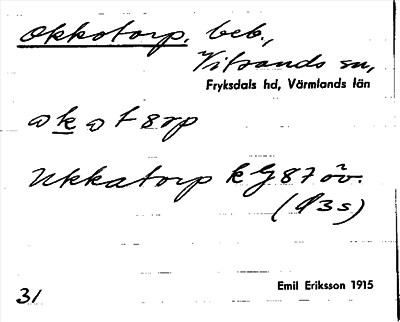 Okkotorp, beb.,
Vitsands sn,
Fryksdals hd, Värmlands län
Ukkatorp kG 87 öv.
31
Emil Eriksson 1915